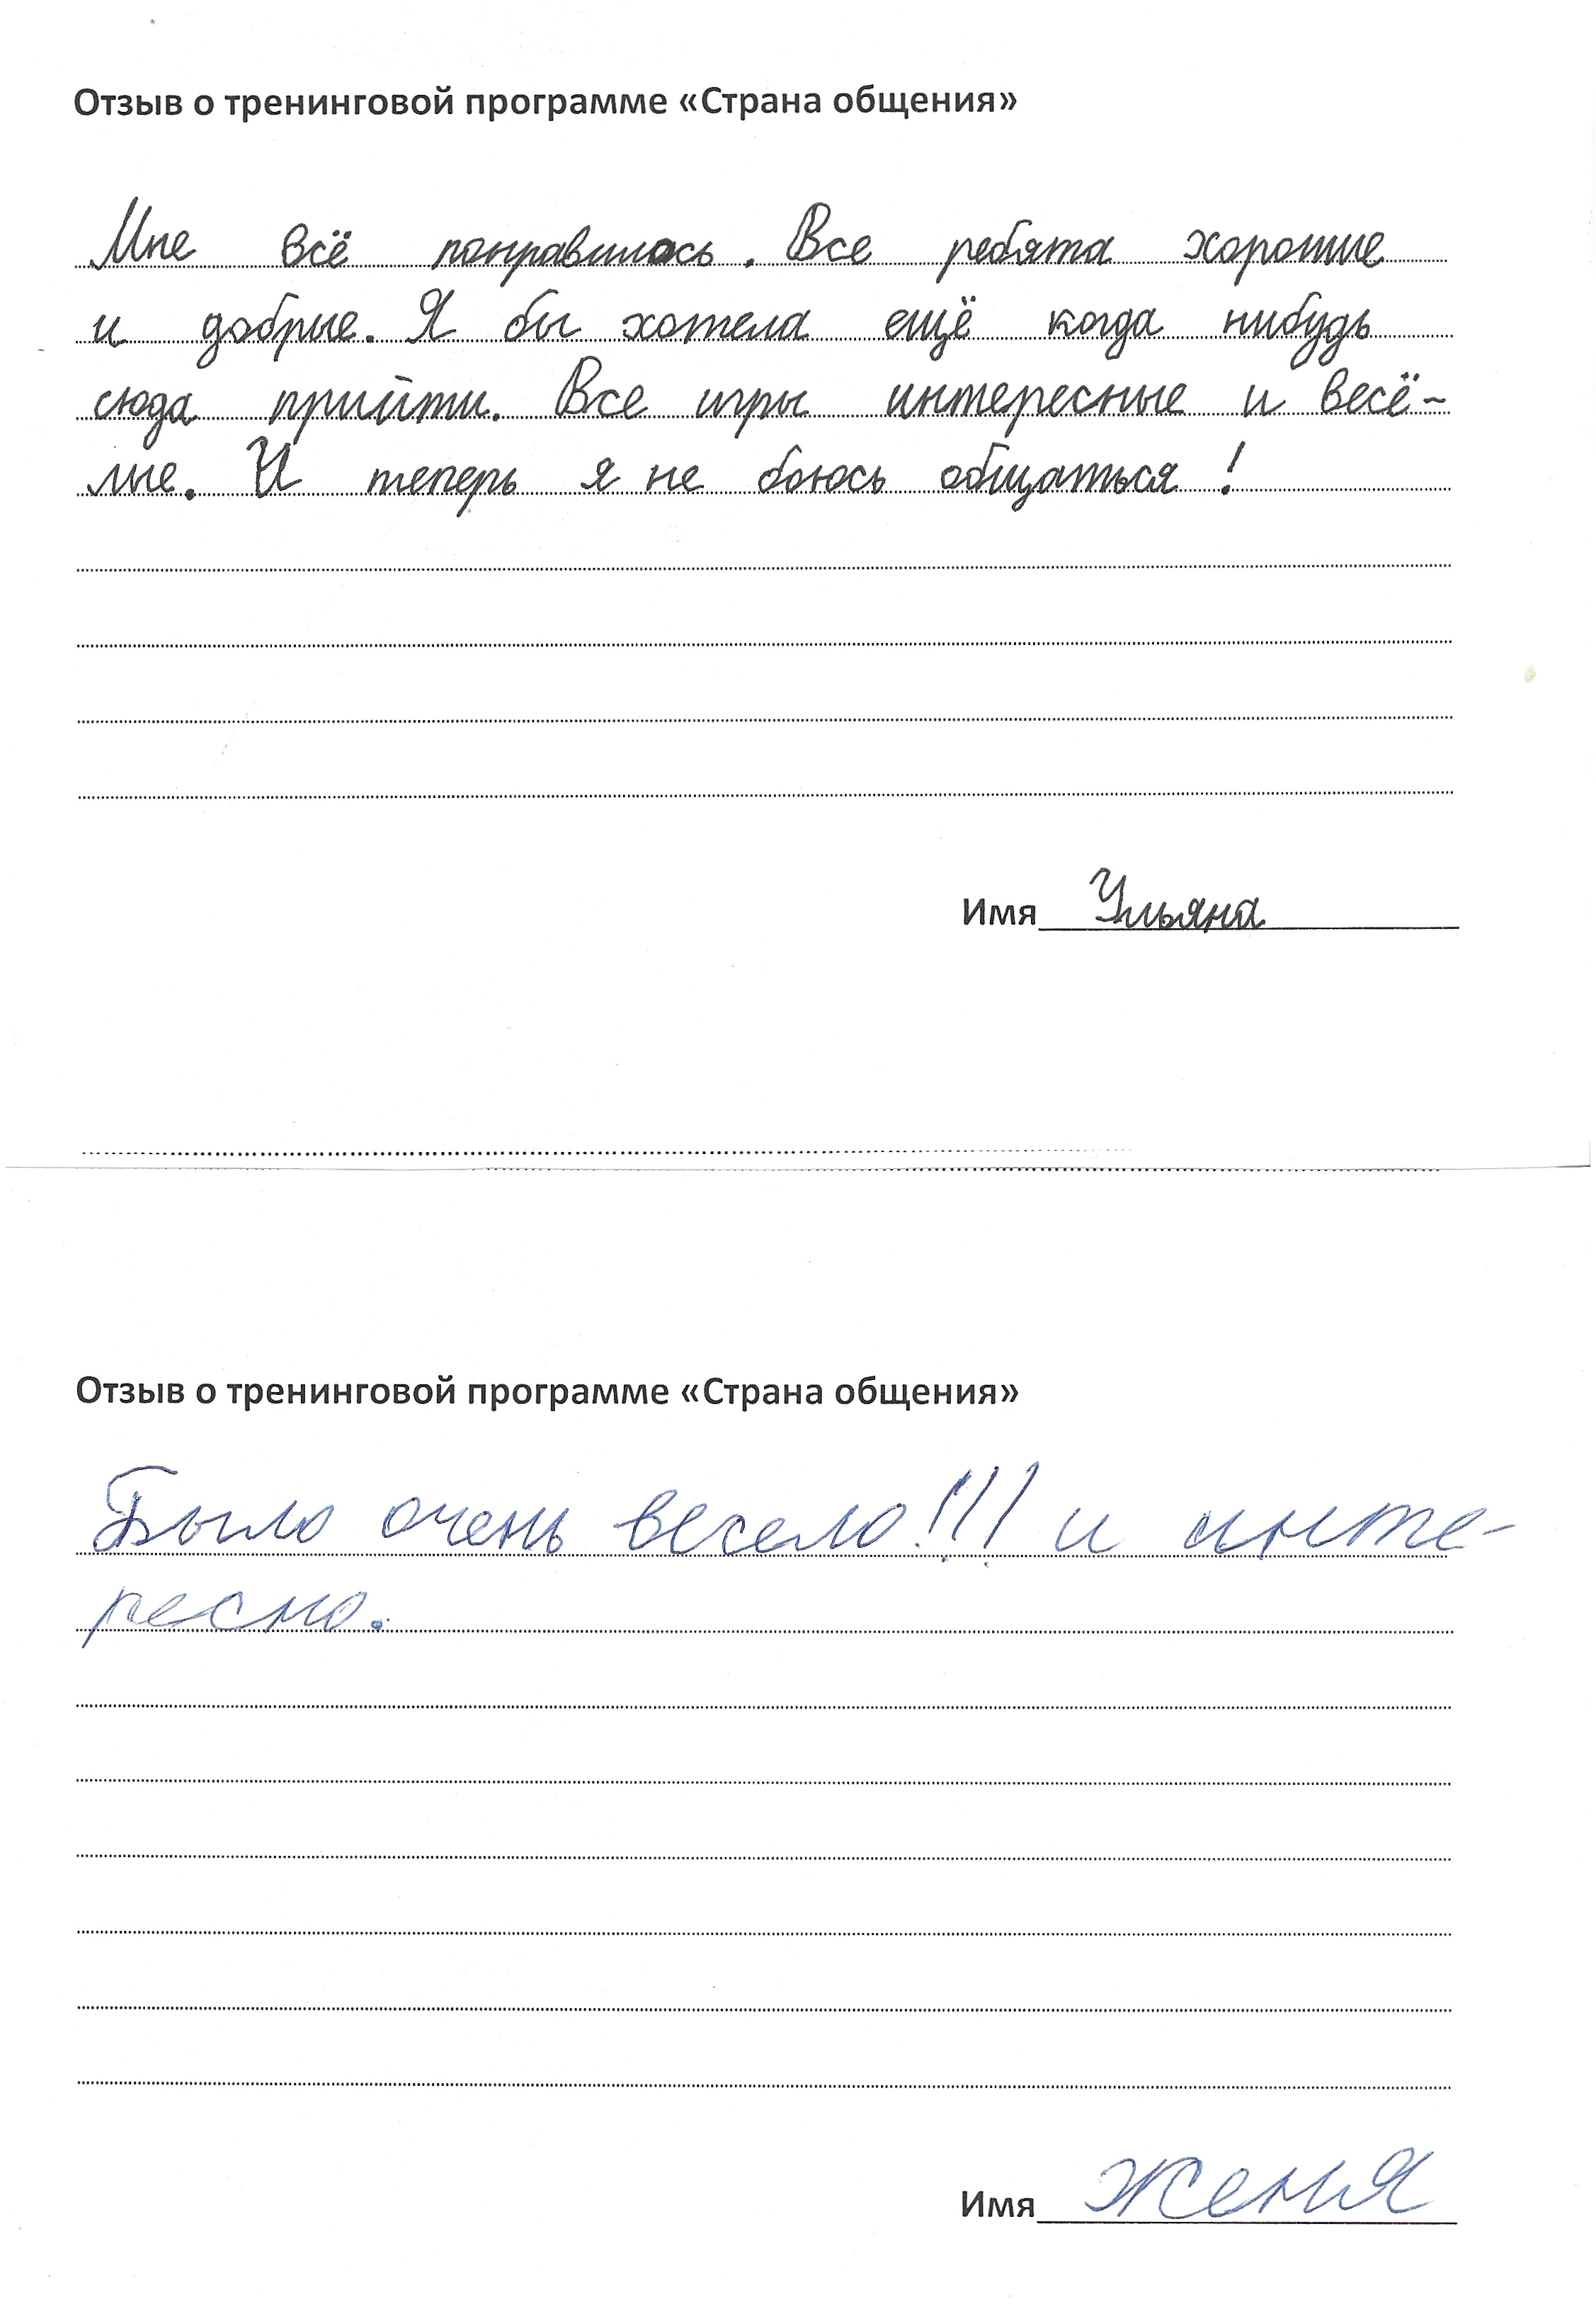 Отзыв о тренинговой программе «Страна общения»
Мне всё понравилось. Все ребята хорошие
и добрые. Я бы хотела ещё когда нибудь
сюда прийти. Все игры интересные и весё-
лые. И теперь я не боюсь общаться!
Имя Ульяна
Отзыв о тренинговой программе «Страна общения»
Было очень весело!!! и инте-
ресно.
Имя Женя